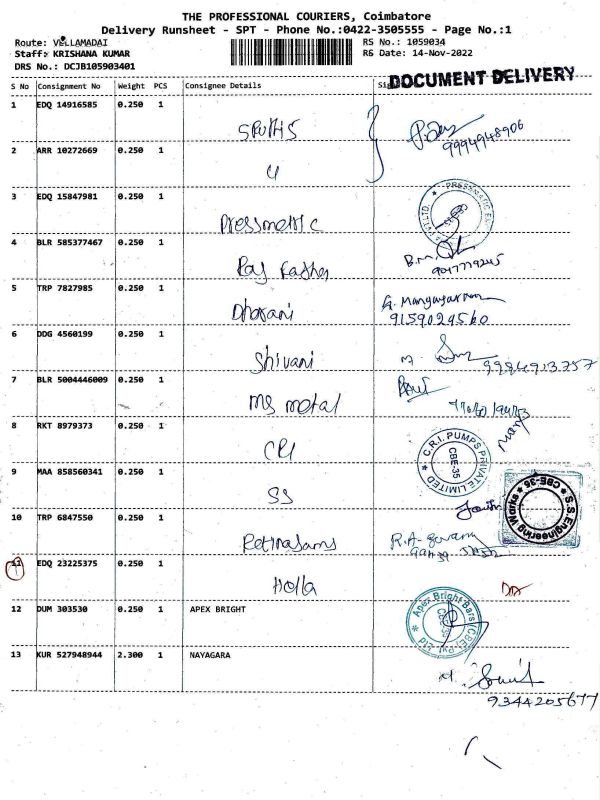 THE PROFESSIONAL COURIERS, Coimbatore
Delivery Runsheet - SPT - Phone No.:0422-3505555 - Page No.:1
Route: VELLAMADAI
RS No.: 1059034
Staff: KRISHANA KUMAR
RS Date: 14-Nov-2022
DRS No.: DCJB105903401
DOCUMENT DELIVERY
S No Consignment No Weight PCS Consignee Details
1 EDQ 14916585 0.250 1
9994948906
2 ARR 10272669 0.250 1 "
3 EDQ 15847981 0.250 1 Pressmatic
PRESSMATIC
PVT. LTD.
4 BLR 585377467 0.250 1 Raj
B.M.
5 TRP 7827985 0.250 1 Dharani
9159029560
6 DDG 4560199 0.250 1 Shivani
7 BLR 5004446009 0.250 1 ms metal
8 RKT 8979373 0.250 1 CRI
C.R.I. PUMPS PRIVATE LIMITED
CBE-35
9 MAA 858560341 0.250 1 SS
S.S. Engineering Works
CBE-35
10 TRP 6847550 0.250 1
R.A.
11 EDQ 23225375 0.250 1 Holla
12 DUM 303530 0.250 1 APEX BRIGHT
Apex Bright Bars (CBE) Pvt. Ltd
CBE-35
13 KUR 527948944 2.300 1 NAYAGARA
9344205677